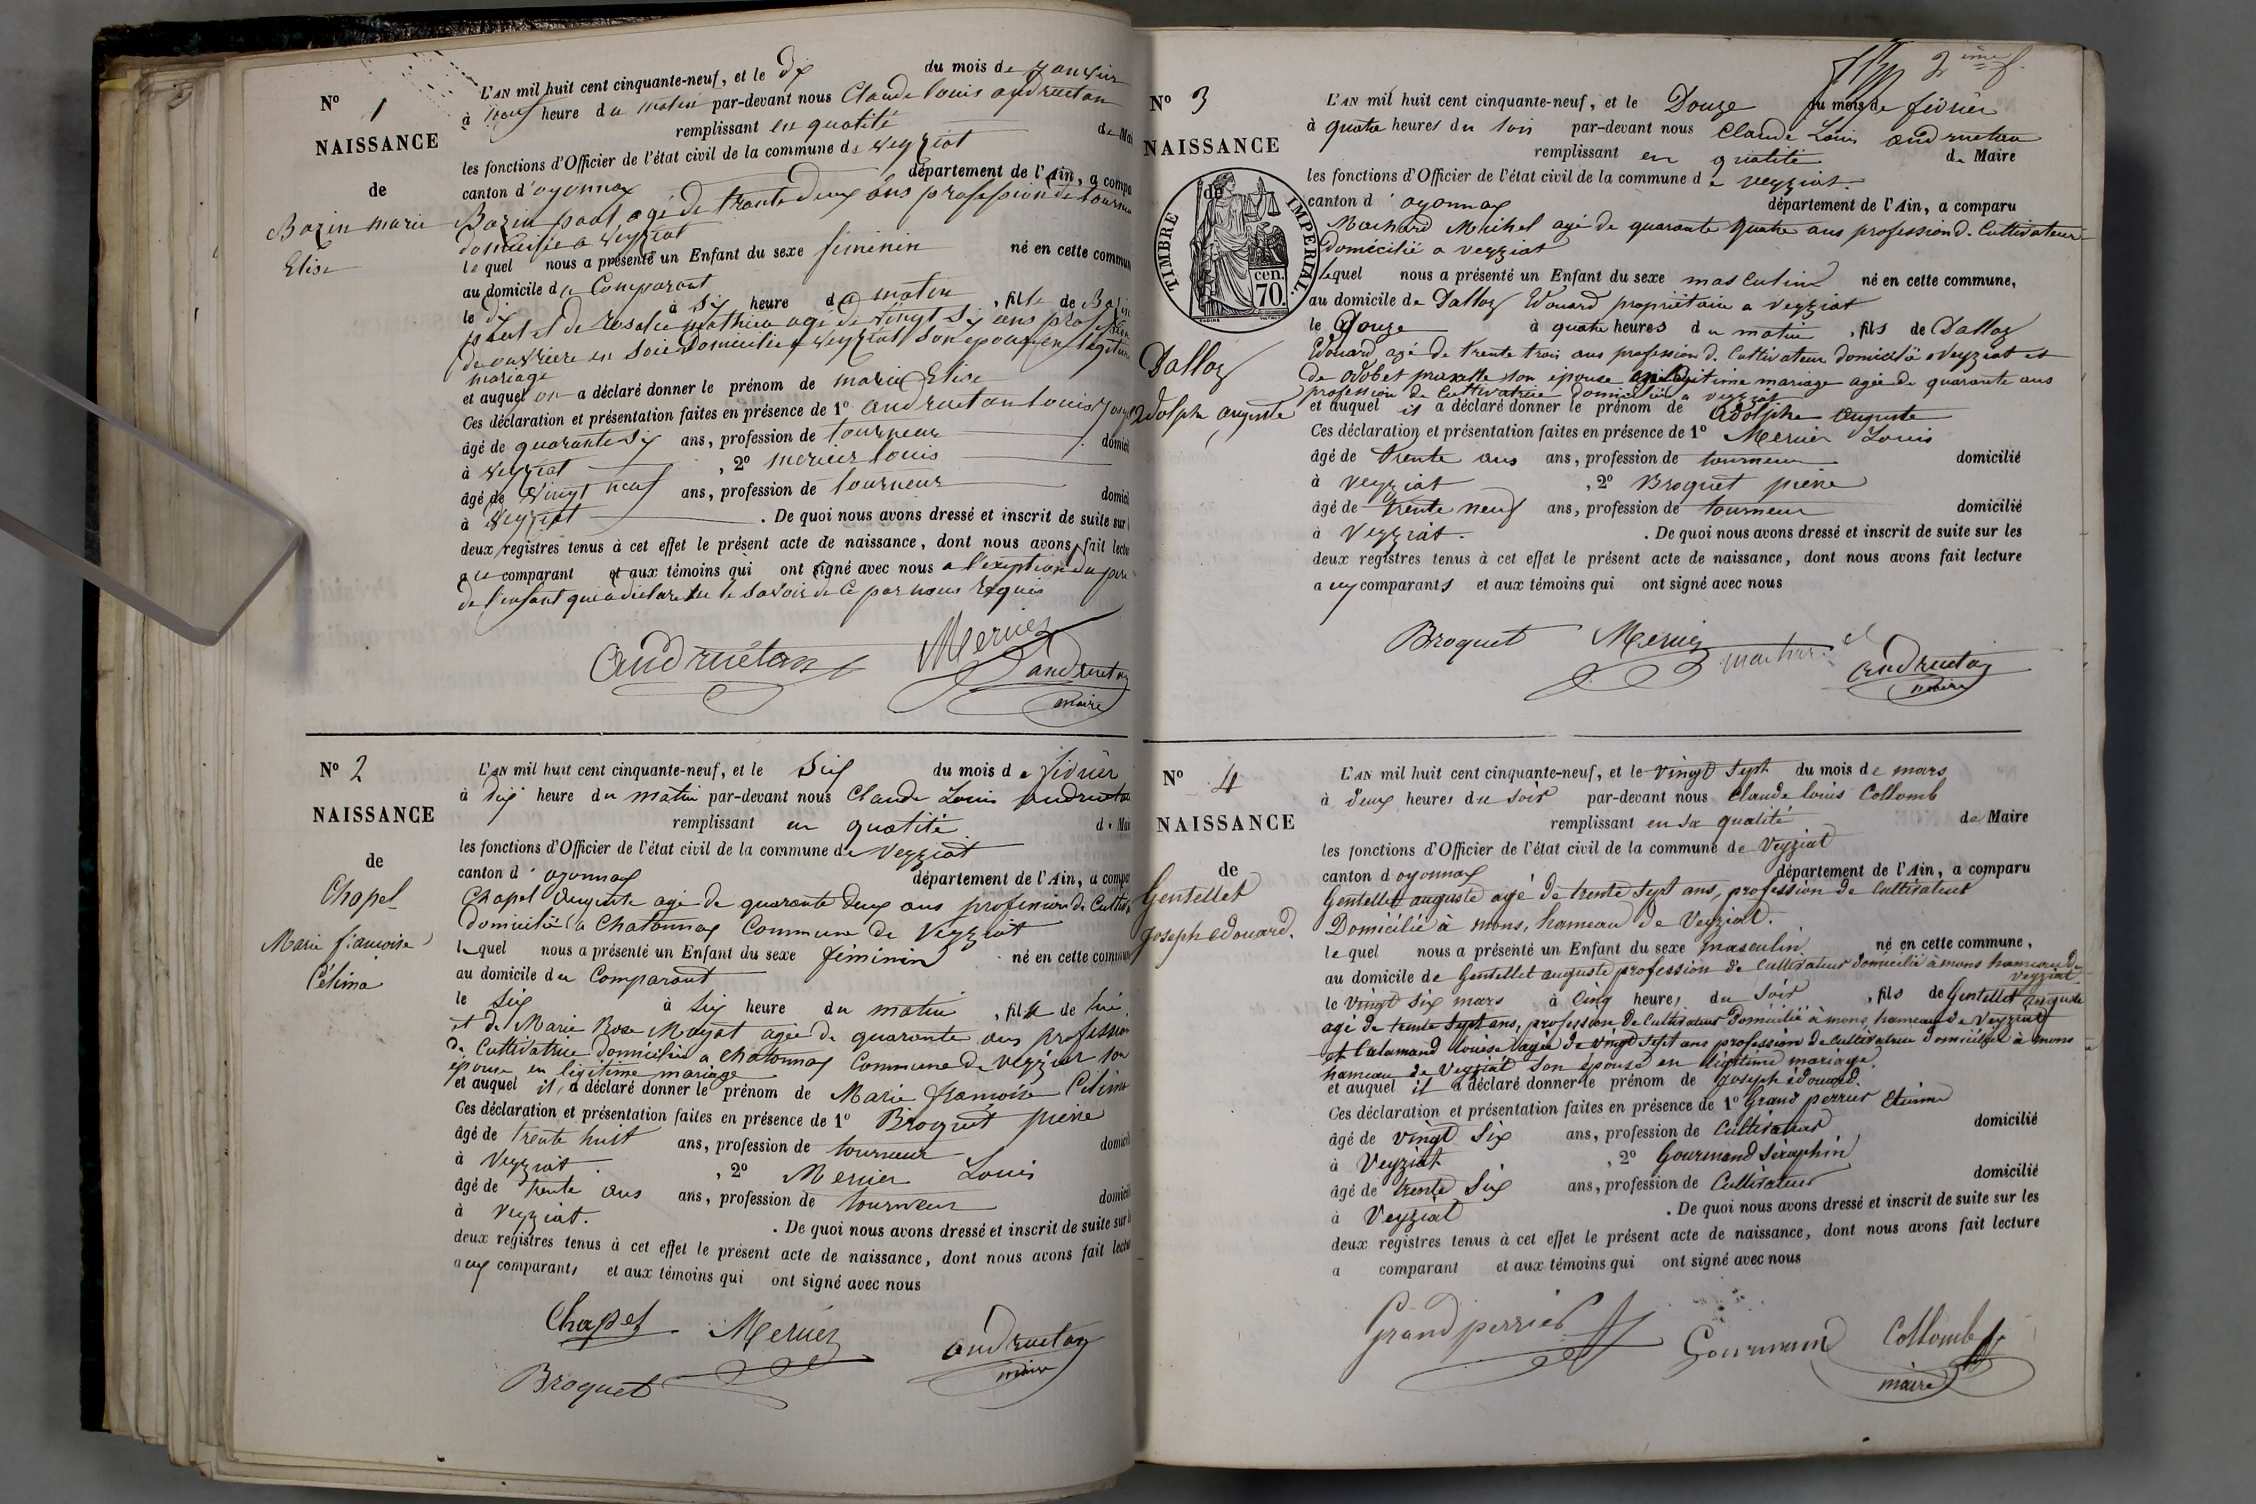 N° 1
NAISSANCE
de
Bazin marie
Elise
L'AN mil huit cent cinquante-neuf, et le dix du mois de janvier
à neuf heure du matin par-devant nous Claude louis andruetan
remplissant en qualité de Mai
les fonctions d'Officier de l'état civil de la commune de Veyziat
canton d'oyonnax département de l'Ain, a compa
Bazin paul agé de trente deux ans profession de tourneu
domicilié a Veyziat
lequel nous a présenté un Enfant du sexe féminin né en cette commun
au domicile du Comparant
le dix à six heure du matin, fille de Bazin
paul et de rosalie mathieu agé de vingt six ans profession
de ouvrière en soie Domiciliée a Veyziat son epouse en legitime
mariage
et auquel on a déclaré donner le prénom de marie Elise
Ces déclaration et présentation faites en présence de 1° andruetan louis
âgé de quarante six ans, profession de tourneur domicil
à Veyziat, 2° mercier louis
âgé de Vingt neuf ans, profession de tourneur domicil
à Veyziat. De quoi nous avons dressé et inscrit de suite sur l
deux registres tenus à cet effet le présent acte de naissance, dont nous avons fait lectu
a ce comparant et aux témoins qui ont signé avec nous a l'exeption du pere
de l'enfant qui a déclaré ne le savoir de ce par nous requis
andruétan Mercier andruetan
maire
N° 2
NAISSANCE
de
Chapel
Marie françoise
Célima
L'AN mil huit cent cinquante-neuf, et le Six du mois de février
à dix heure du matin par-devant nous Claude Louis andruetan
remplissant en qualité de Mai
les fonctions d'Officier de l'état civil de la commune de Veyziat
canton d'oyonnax département de l'Ain, a compa
Chapel Auguste agé de quarante deux ans profession de Cultiv
domicilié a Chatonnax Commune de Veyziat
lequel nous a présenté un Enfant du sexe féminin né en cette commun
au domicile du Comparant
le Six à Six heure du matin, fille de lui
et de Marie Rose Moyat agée de quarante ans profession
de Cultivatrice domiciliée a chatonnax Commune de Veyziat son
épouse en légitime mariage
et auquel il a déclaré donner le prénom de Marie françoise Célima
Ces déclaration et présentation faites en présence de 1° Broquet pierre
âgé de trente huit ans, profession de tourneur domicil
à Veyziat, 2° Mercier Louis
âgé de trente ans ans, profession de tourneur domicil
à Veyziat. De quoi nous avons dressé et inscrit de suite sur l
deux registres tenus à cet effet le présent acte de naissance, dont nous avons fait lectu
aux comparants et aux témoins qui ont signé avec nous
Chapel Mercier andruetan
maire
Broquet
2ème f.
N° 3
NAISSANCE
de
TIMBRE IMPERIAL
70 cen.
Dalloz
adolphe auguste
L'AN mil huit cent cinquante-neuf, et le Douze du mois de février
à quatre heures du soir par-devant nous Claude Louis andruetan
remplissant en qualité de Maire
les fonctions d'Officier de l'état civil de la commune de Veyziat.
canton d'oyonnax département de l'Ain, a comparu
Machard Michel agé de quarante quatre ans profession de Cultivateur
domicilié a Veyziat
lequel nous a présenté un Enfant du sexe masculin né en cette commune,
au domicile de Dalloz Edouard propriétaire a Veyziat
le Douze à quatre heures du matin, fils de Dalloz
Edouard agé de trente trois ans profession de Cultivateur domicilié a Veyziat et
de odobet praxelle son épouse en légitime mariage agée de quarante ans
profession de Cultivatrice domiciliée a Veyziat
et auquel il a déclaré donner le prénom de adolphe auguste
Ces déclaration et présentation faites en présence de 1° Mercier Louis
âgé de trente ans ans, profession de tourneur domicilié
à Veyziat, 2° Broquet pierre
âgé de trente neuf ans, profession de tourneur domicilié
à Veyziat. De quoi nous avons dressé et inscrit de suite sur les
deux registres tenus à cet effet le présent acte de naissance, dont nous avons fait lecture
aux comparants et aux témoins qui ont signé avec nous
Broquet Mercier machard andruetan
maire
N° 4
NAISSANCE
de
Gentellet
Joseph edouard.
L'AN mil huit cent cinquante-neuf, et le vingt Sept du mois de mars
à deux heures du soir par-devant nous Claude louis Collomb
remplissant en sa qualité de Maire
les fonctions d'Officier de l'état civil de la commune de Veyziat
canton d oyonnax département de l'Ain, a comparu
Gentellet auguste agé de trente Sept ans, profession de Cultivateur
Domicilié à mons, hameau de Veyziat.
lequel nous a présenté un Enfant du sexe masculin né en cette commune,
au domicile de Gentellet auguste profession de Cultivateur domicilié à mons hameau de
Veyziat
le Vingt Six mars à Cinq heures du Soir, fils de Gentellet auguste
agé de trente Sept ans, profession de Cultivateur Domicilié à mons, hameau de Veyziat
et Calamand louise agée de vingt sept ans profession de Cultivatrice domiciliée à mons
hameau de Veyziat Son épouse en légitime mariage.
et auquel il a déclaré donner le prénom de Joseph édouard.
Ces déclaration et présentation faites en présence de 1° Grand perrier Etienne
âgé de vingt Six ans, profession de Cultivateur domicilié
à Veyziat, 2° Gourmand Séraphin
âgé de trente Six ans, profession de Cultivateur domicilié
à Veyziat. De quoi nous avons dressé et inscrit de suite sur les
deux registres tenus à cet effet le présent acte de naissance, dont nous avons fait lecture
a comparant et aux témoins qui ont signé avec nous
Grand perrier Gourmand Collomb
maire